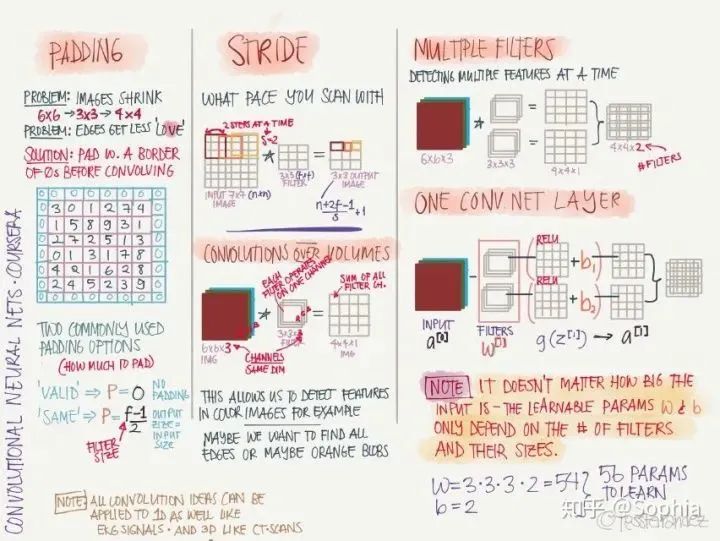 CONVOLUTIONAL NEURAL NETS · COURSERA
PADDING
PROBLEM: IMAGES SHRINK
6x6 → 3x3 → 4x4
PROBLEM: EDGES GET LESS 'LOVE'
SOLUTION: PAD W. A BORDER
OF 0s BEFORE CONVOLVING
0 0 0 0 0 0 0 0
0 3 0 1 2 7 4 0
0 1 5 8 9 3 1 0
0 2 7 2 5 1 3 0
0 0 1 3 1 7 8 0
0 4 2 1 6 2 8 0
0 2 4 5 2 3 9 0
0 0 0 0 0 0 0 0
TWO COMMONLY USED
PADDING OPTIONS
(HOW MUCH TO PAD)
'VALID' ⇒ P=0 NO
PADDING
'SAME' ⇒ P= f-1/2 OUTPUT
SIZE=
INPUT
SIZE
FILTER
SIZE
NOTE: ALL CONVOLUTION IDEAS CAN BE
APPLIED TO 1D AS WELL LIKE
EKG SIGNALS · AND 3D LIKE CT-SCANS
STRIDE
WHAT PACE YOU SCAN WITH
2 STEPS AT A TIME
S=2
* =
INPUT 7x7 (n×n)
IMAGE
3x3 (f×f)
FILTER
3x3 OUTPUT
IMAGE
n+2f-1/s +1
CONVOLUTIONS OVER VOLUMES
EACH
FILTER OPERATES
ON ONE CHANNEL
SUM OF ALL
FILTER CH.
* =
6x6x3
IMG
3x3x3
FILTER
4x4x1
IMG
CHANNELS
SAME DIM
THIS ALLOWS US TO DETECT FEATURES
IN COLOR IMAGES FOR EXAMPLE
MAYBE WE WANT TO FIND ALL
EDGES OR MAYBE ORANGE BLOBS
MULTIPLE FILTERS
DETECTING MULTIPLE FEATURES AT A TIME
* = =
6x6x3
3x3x3
4x4x1
4x4x2
#FILTERS
ONE CONV. NET LAYER
RELU
( + b₁ )
RELU
( + b₂ )
INPUT
FILTERS
a[0] w[1] g(z[1]) → a[1]
NOTE IT DOESN'T MATTER HOW BIG THE
INPUT IS - THE LEARNABLE PARAMS w & b
ONLY DEPEND ON THE # OF FILTERS
AND THEIR SIZES.
w=3·3·3·2=54 } 56 PARAMS
b=2 TO LEARN
知乎 @Sophia
@TessFerrandez